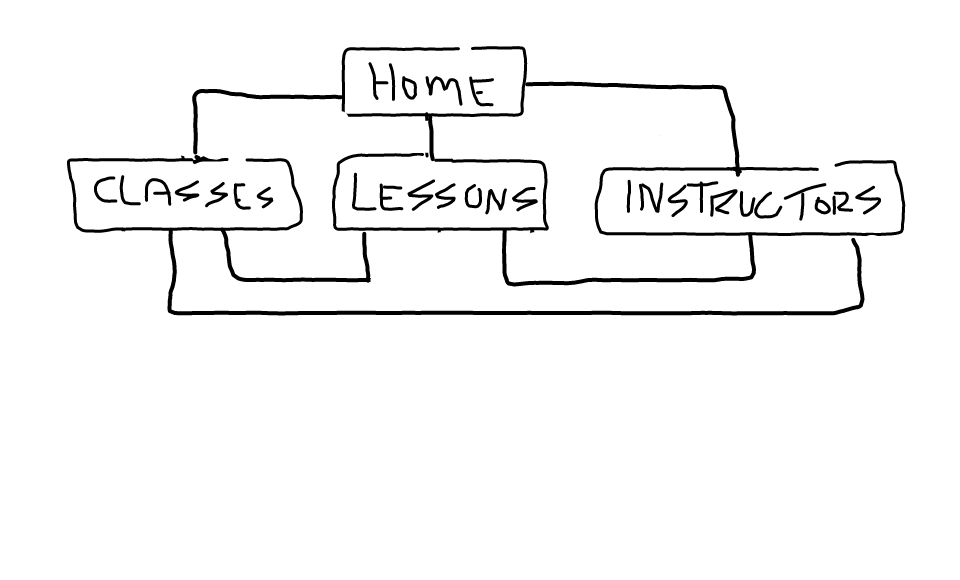 HOME
CLASSES
LESSONS
INSTRUCTORS